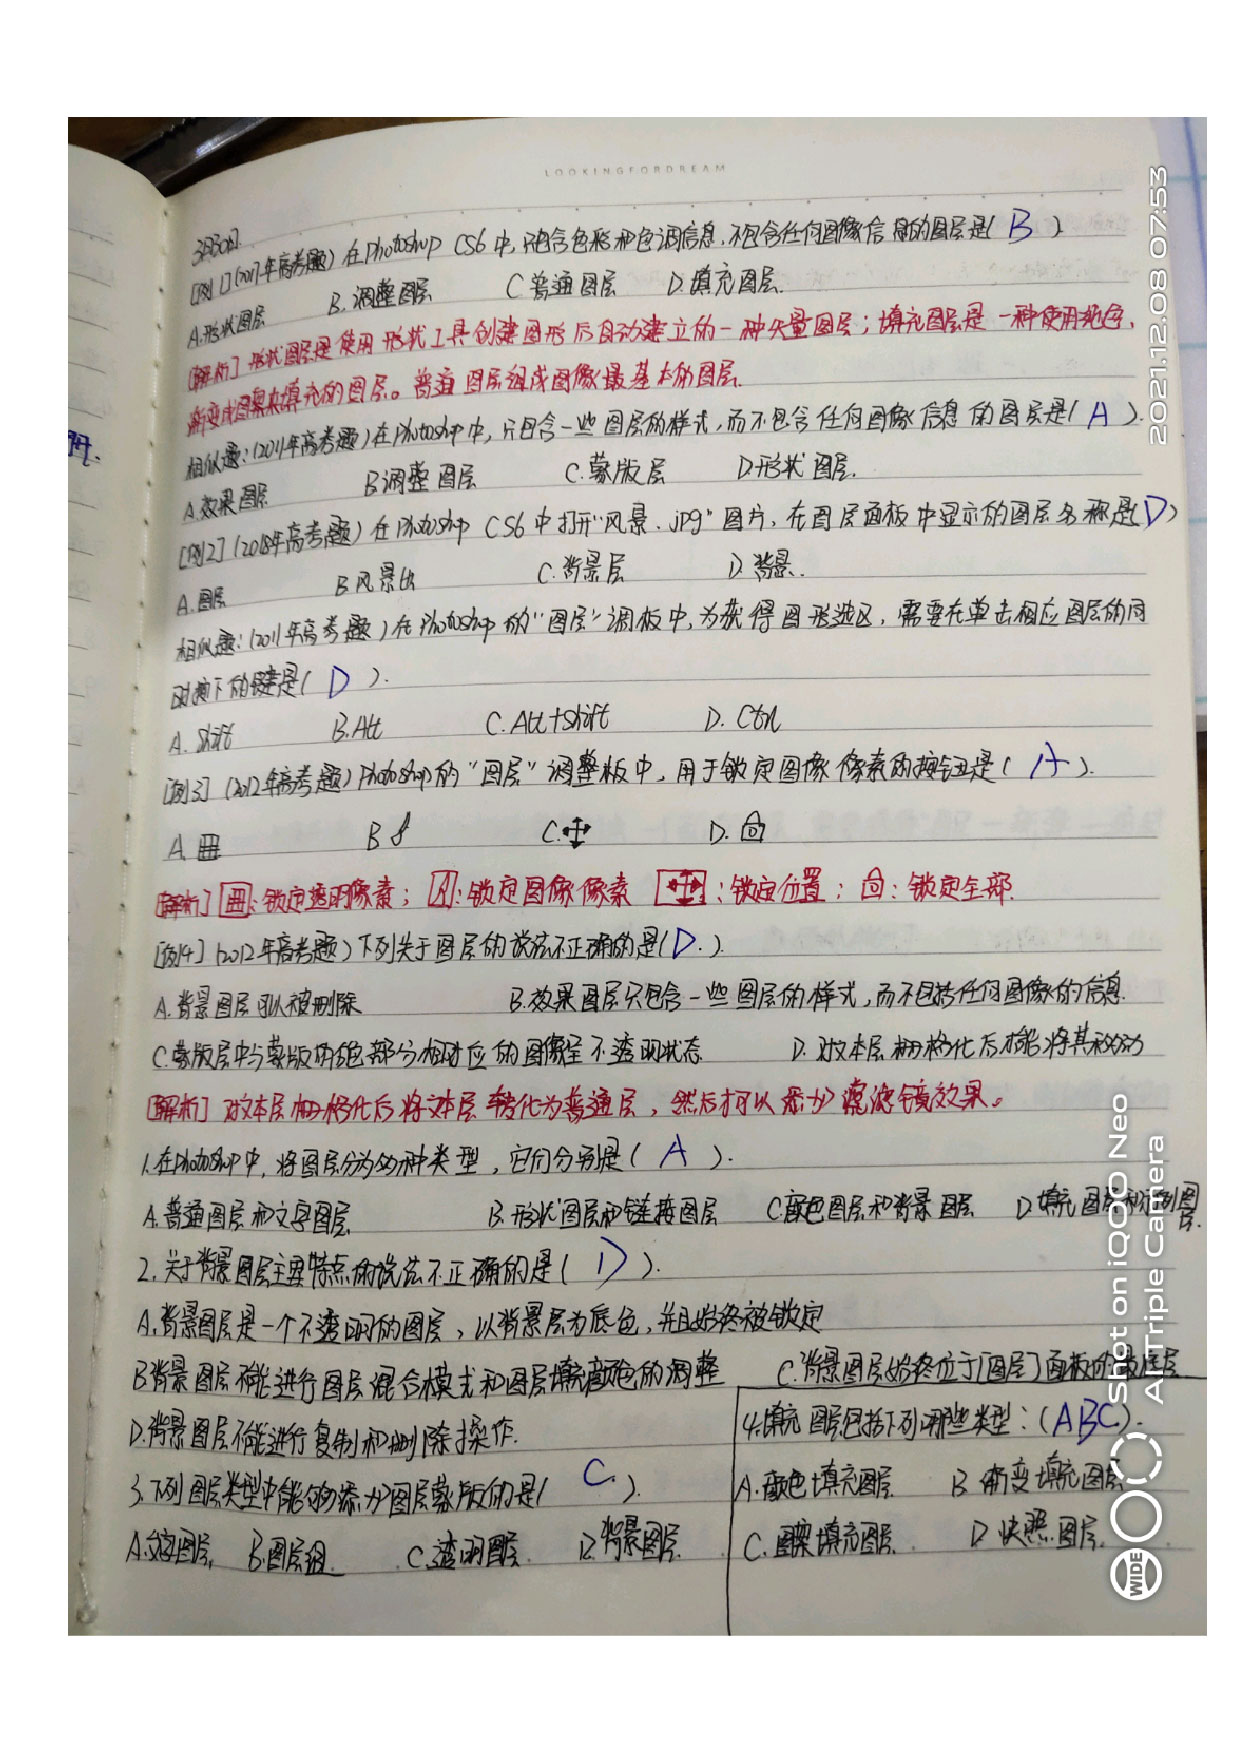 LOOKINGFORDREAM
[例1](2017年高考题)在Photoshop CS6中,只包含色彩和色调信息,不包含任何图像信息的图层是( B )
A.形状图层 B.调整图层 C普通图层 D.填充图层.
[解析]形状图层是使用形状工具创建图形后自动建立的一种矢量图层;填充图层是一种使用纯色、
渐变或图案来填充的图层。普通图层组成图像最基本的图层.
相似题:(2011年高考题)在Photoshop中,只包含一些图层的样式,而不包含任何图像信息的图层是( A ).
A.效果图层 B调整图层 C.蒙版层 D形状图层.
[例2](2018年高考题)在Photoshop CS6中打开“风景.jpg”图片,在图层面板中显示的图层名称是(D)
A.图层 B风景 C.背景层 D.背景.
相似题:(2011年高考题)在Photoshop的“图层”调板中,为获得图形选区,需要在单击相应图层的同
时按下的键是( D ).
A. Shift B.Alt C.Alt+Shift D. Ctrl
[例3](2012年高考题)Photoshop的“图层”调整板中,用于锁定图像像素的按钮是( A ).
A. B C. D.
[解析] :锁定透明像素; :锁定图像像素 :锁定位置; :锁定全部.
[例4](2012年高考题)下列关于图层的说法不正确的是(D.).
A.背景图层可以被删除 B.效果图层只包含一些图层的样式,而不包括任何图像的信息.
C.蒙版层中与蒙版的 色部分相对应的图像呈不透明状态 D. 对文本层栅格化后才能将其移动
[解析]对文本层栅格化后将文本层转化为普通层,然后才可以添加滤镜效果。
1.在Photoshop中,将图层分为 种类型,它们分别是( A ).
A.普通图层和文字图层 B.形状图层和链接图层 C颜色图层和背景图层 D填充图层和 图层.
2.关于背景图层主要特点的说法不正确的是( D ).
A.背景图层是一个不透明的图层,以背景层为底色,并且始终被锁定
B背景图层不能进行图层混合模式和图层填充颜色的调整 C.背景图层始终位于[图层]面板的最底层
D.背景图层不能进行复制和删除操作.
3.下列图层类型中能够添加图层蒙版的是( C. ).
A.文字图层. B.图层组. C.透明图层. D.背景图层.
4.填充图层包括下列哪些类型:(ABC).
A.颜色填充图层 B 渐变填充图层
C.图案填充图层. D.快照图层.
2021.12.08 07:53
Shot on iQOO Neo
AI Triple Camera
WIDE